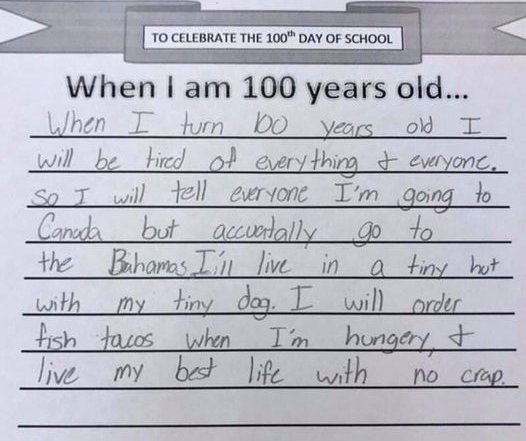 TO CELEBRATE THE 100th DAY OF SCHOOL
When I am 100 years old...
When I turn 100 years old I
will be tired of everything & everyone.
so I will tell everyone I'm going to
Canada but accuatally go to
the Bahamas I'll live in a tiny hut
with my tiny dog. I will order
fish tacos when I'm hungery, &
live my best life with no crap.